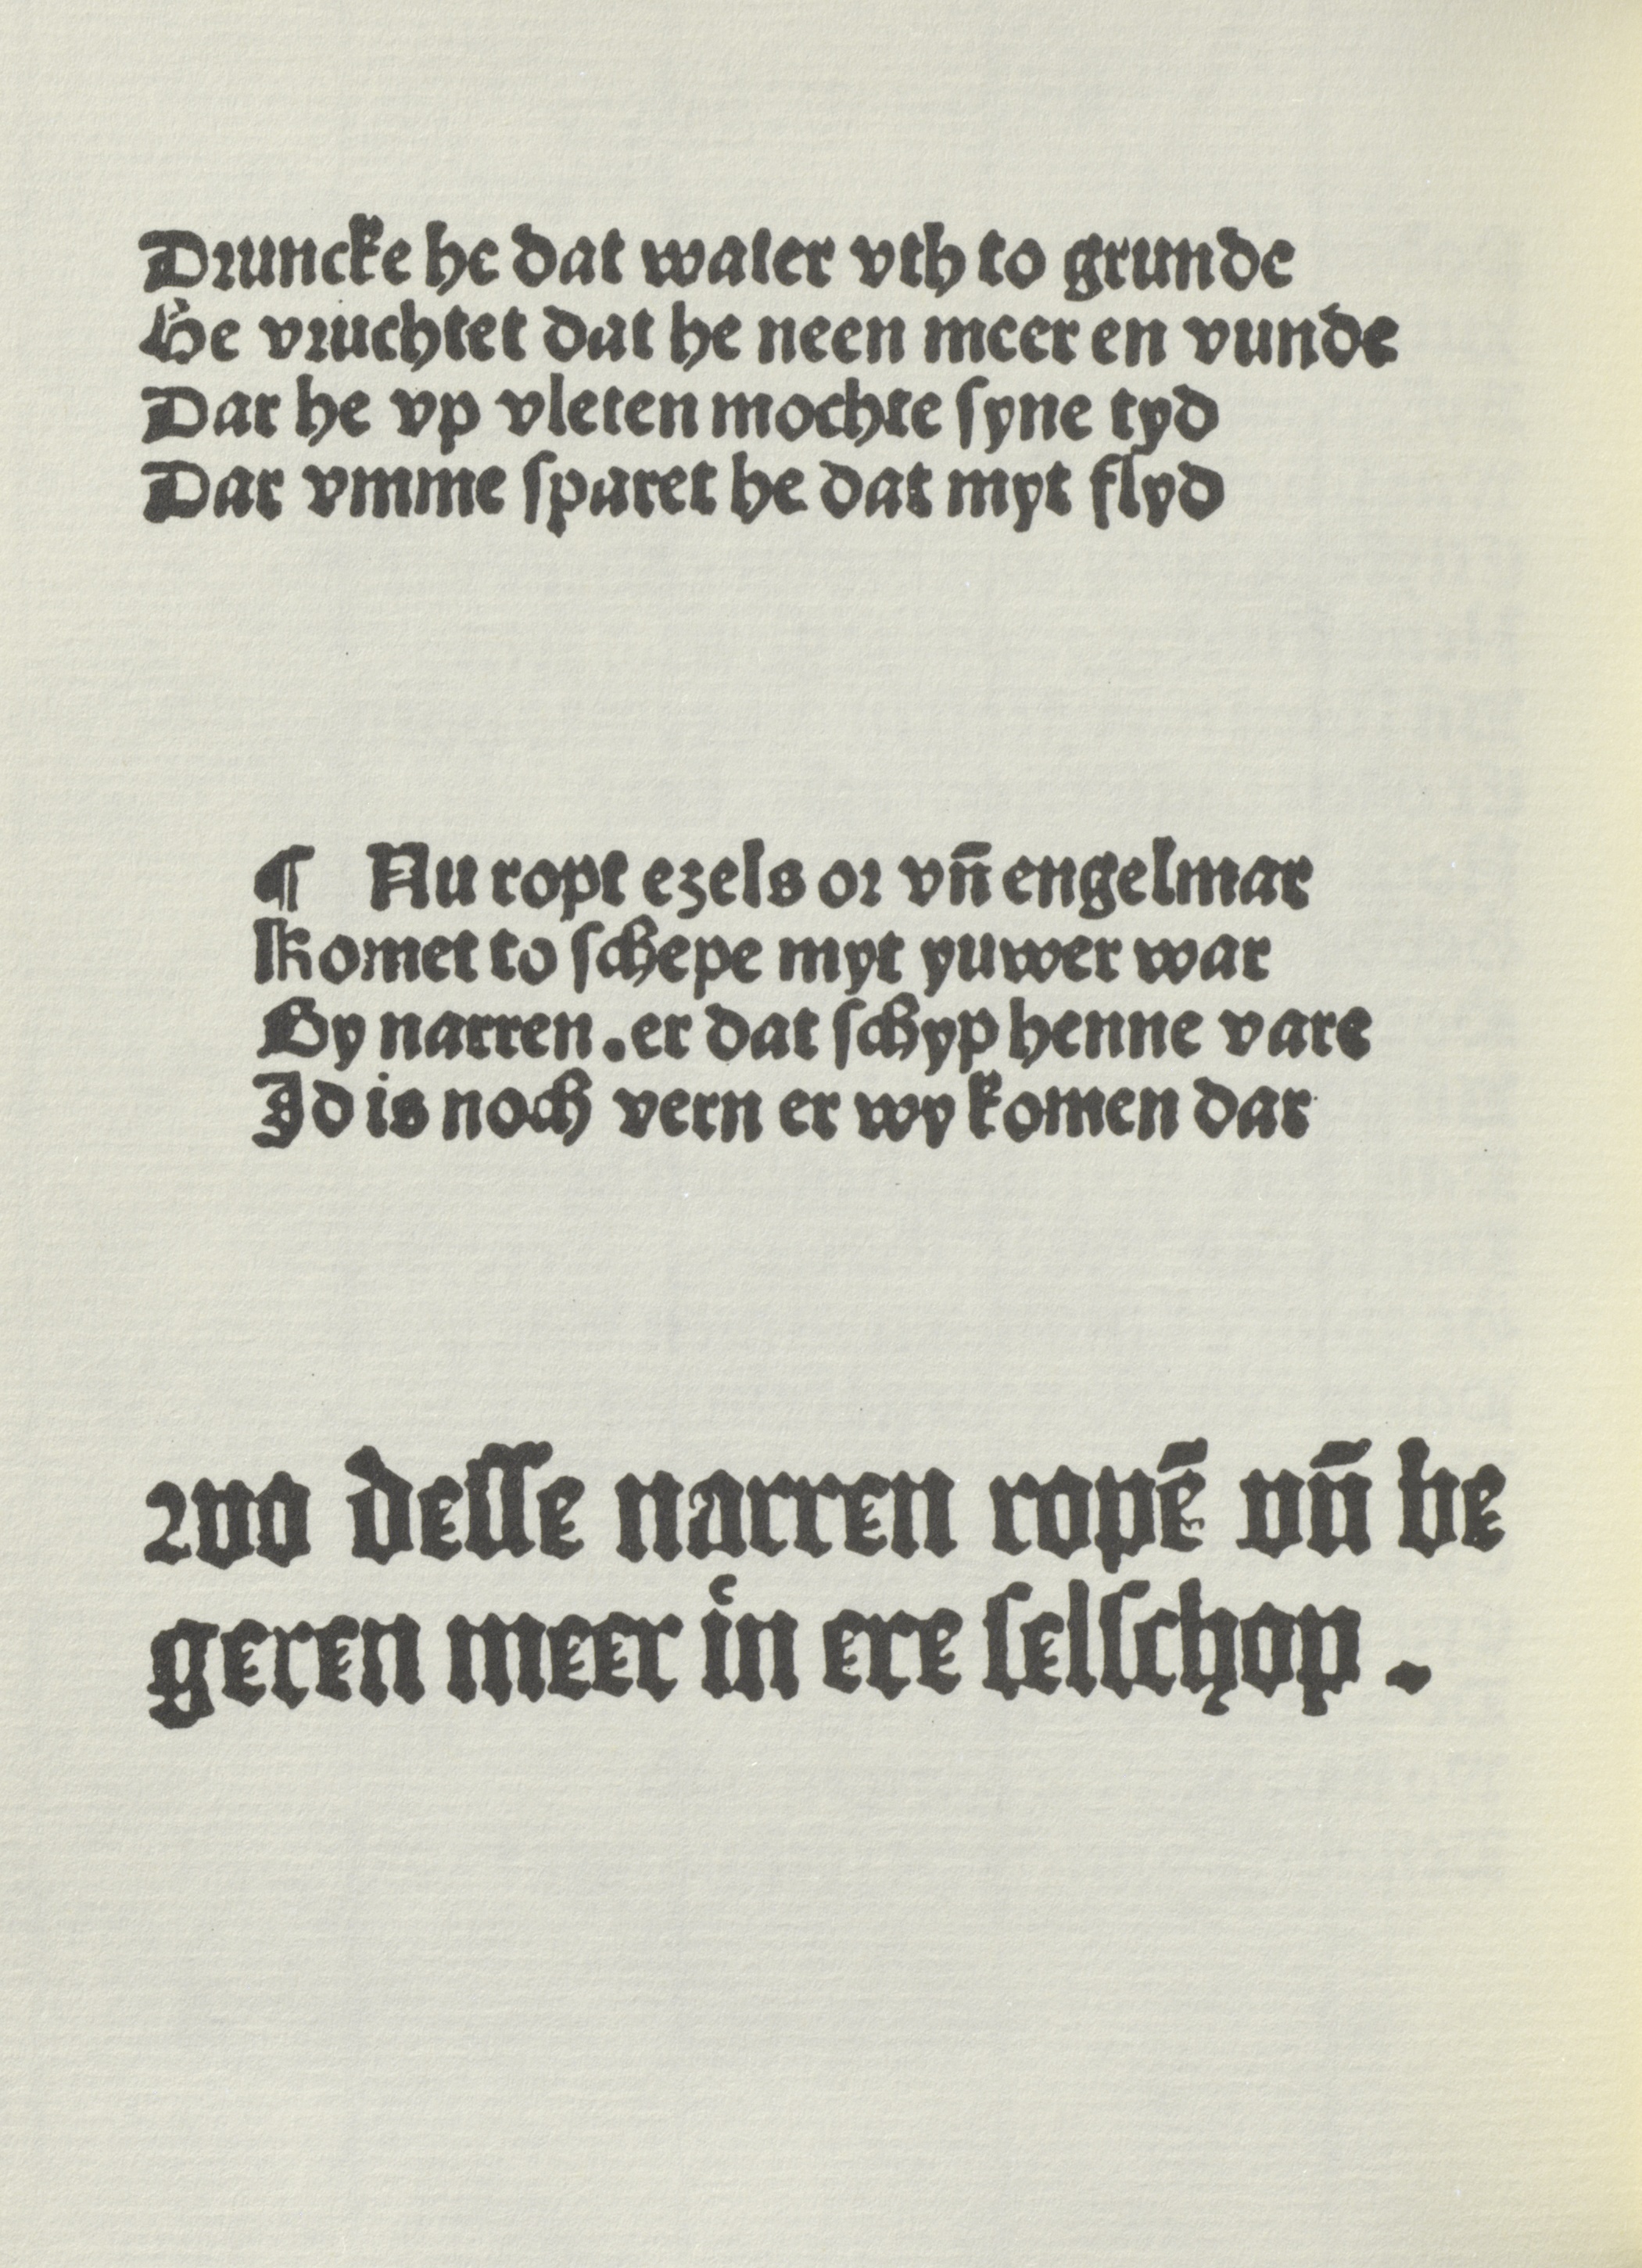 Druncke he dat water vth to grunde
He vruchtet dat he neen meer en vunde
Dar he vp vleten mochte ſyne tyd
Dar vmme ſparet he dat myt flyd
¶ Nu ropt ezels or vn̄ engelmar
Komet to ſchepe myt yuwer war
Gy narren .er dat ſchyp henne vare
Id is noch vern er wy komen dar
Wo deſſe narren ropē vn̄ be
geren meer in ere ſelſchop .